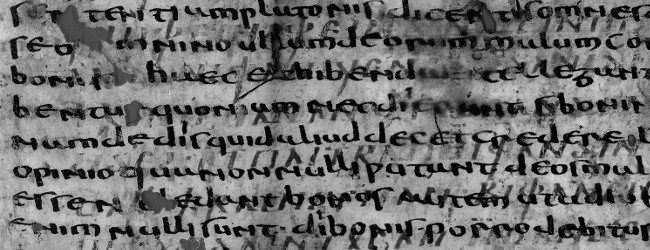 tentiam platonis dicentis omnes d
se omnino ullum deorum malum con
bonis haec exhibenda intellegant
bentur quoniam nec dii sunt si boni n
nam de dis quid aliud decet credere il
opinio qua nonnulli putant deos mal
esse ne laedant bonos autem ut adiu
enim nulli sunt di bonis porro debitus